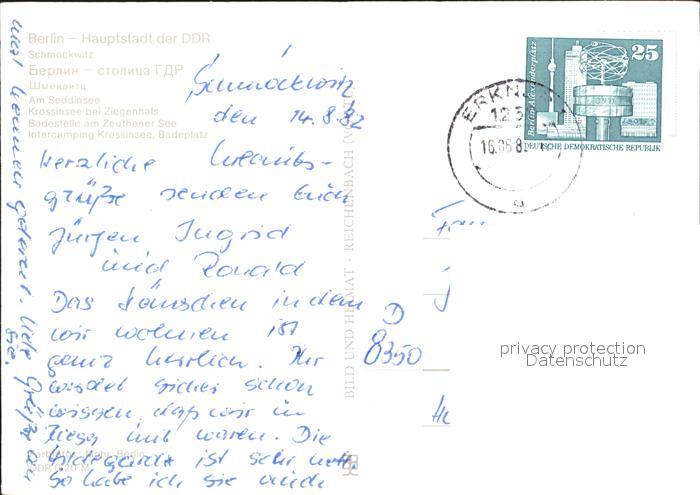 Berlin – Hauptstadt der DDR
Schmöckwitz
Берлин – столица ГДР
Шмёквитц
Am Seddinsee
Krossinsee bei Ziegenhals
Badestelle am Zeuthener See
Intercamping Krossinsee, Badeplatz
Schmöckwitz
den 14.8.82
Herzliche Urlaubs-
grüße senden Euch
Jürgen Ingrid
und Ronald
Das Häuschen in dem
wir wohnen ist
ganz herrlich. Ihr
werdet sicher schon
wissen, daß wir in
mit waren. Die
Hildegard ist sehr nett.
So habe ich sie mir
nicht gedacht. Viele Grüße an
Sie.
BILD UND HEIMAT · REICHENBACH
Berlin-Alexanderplatz
25
DEUTSCHE DEMOKRATISCHE REPUBLIK
ERKN
125
16.08.8
a
Fam
D
8350
privacy protection
Datenschutz